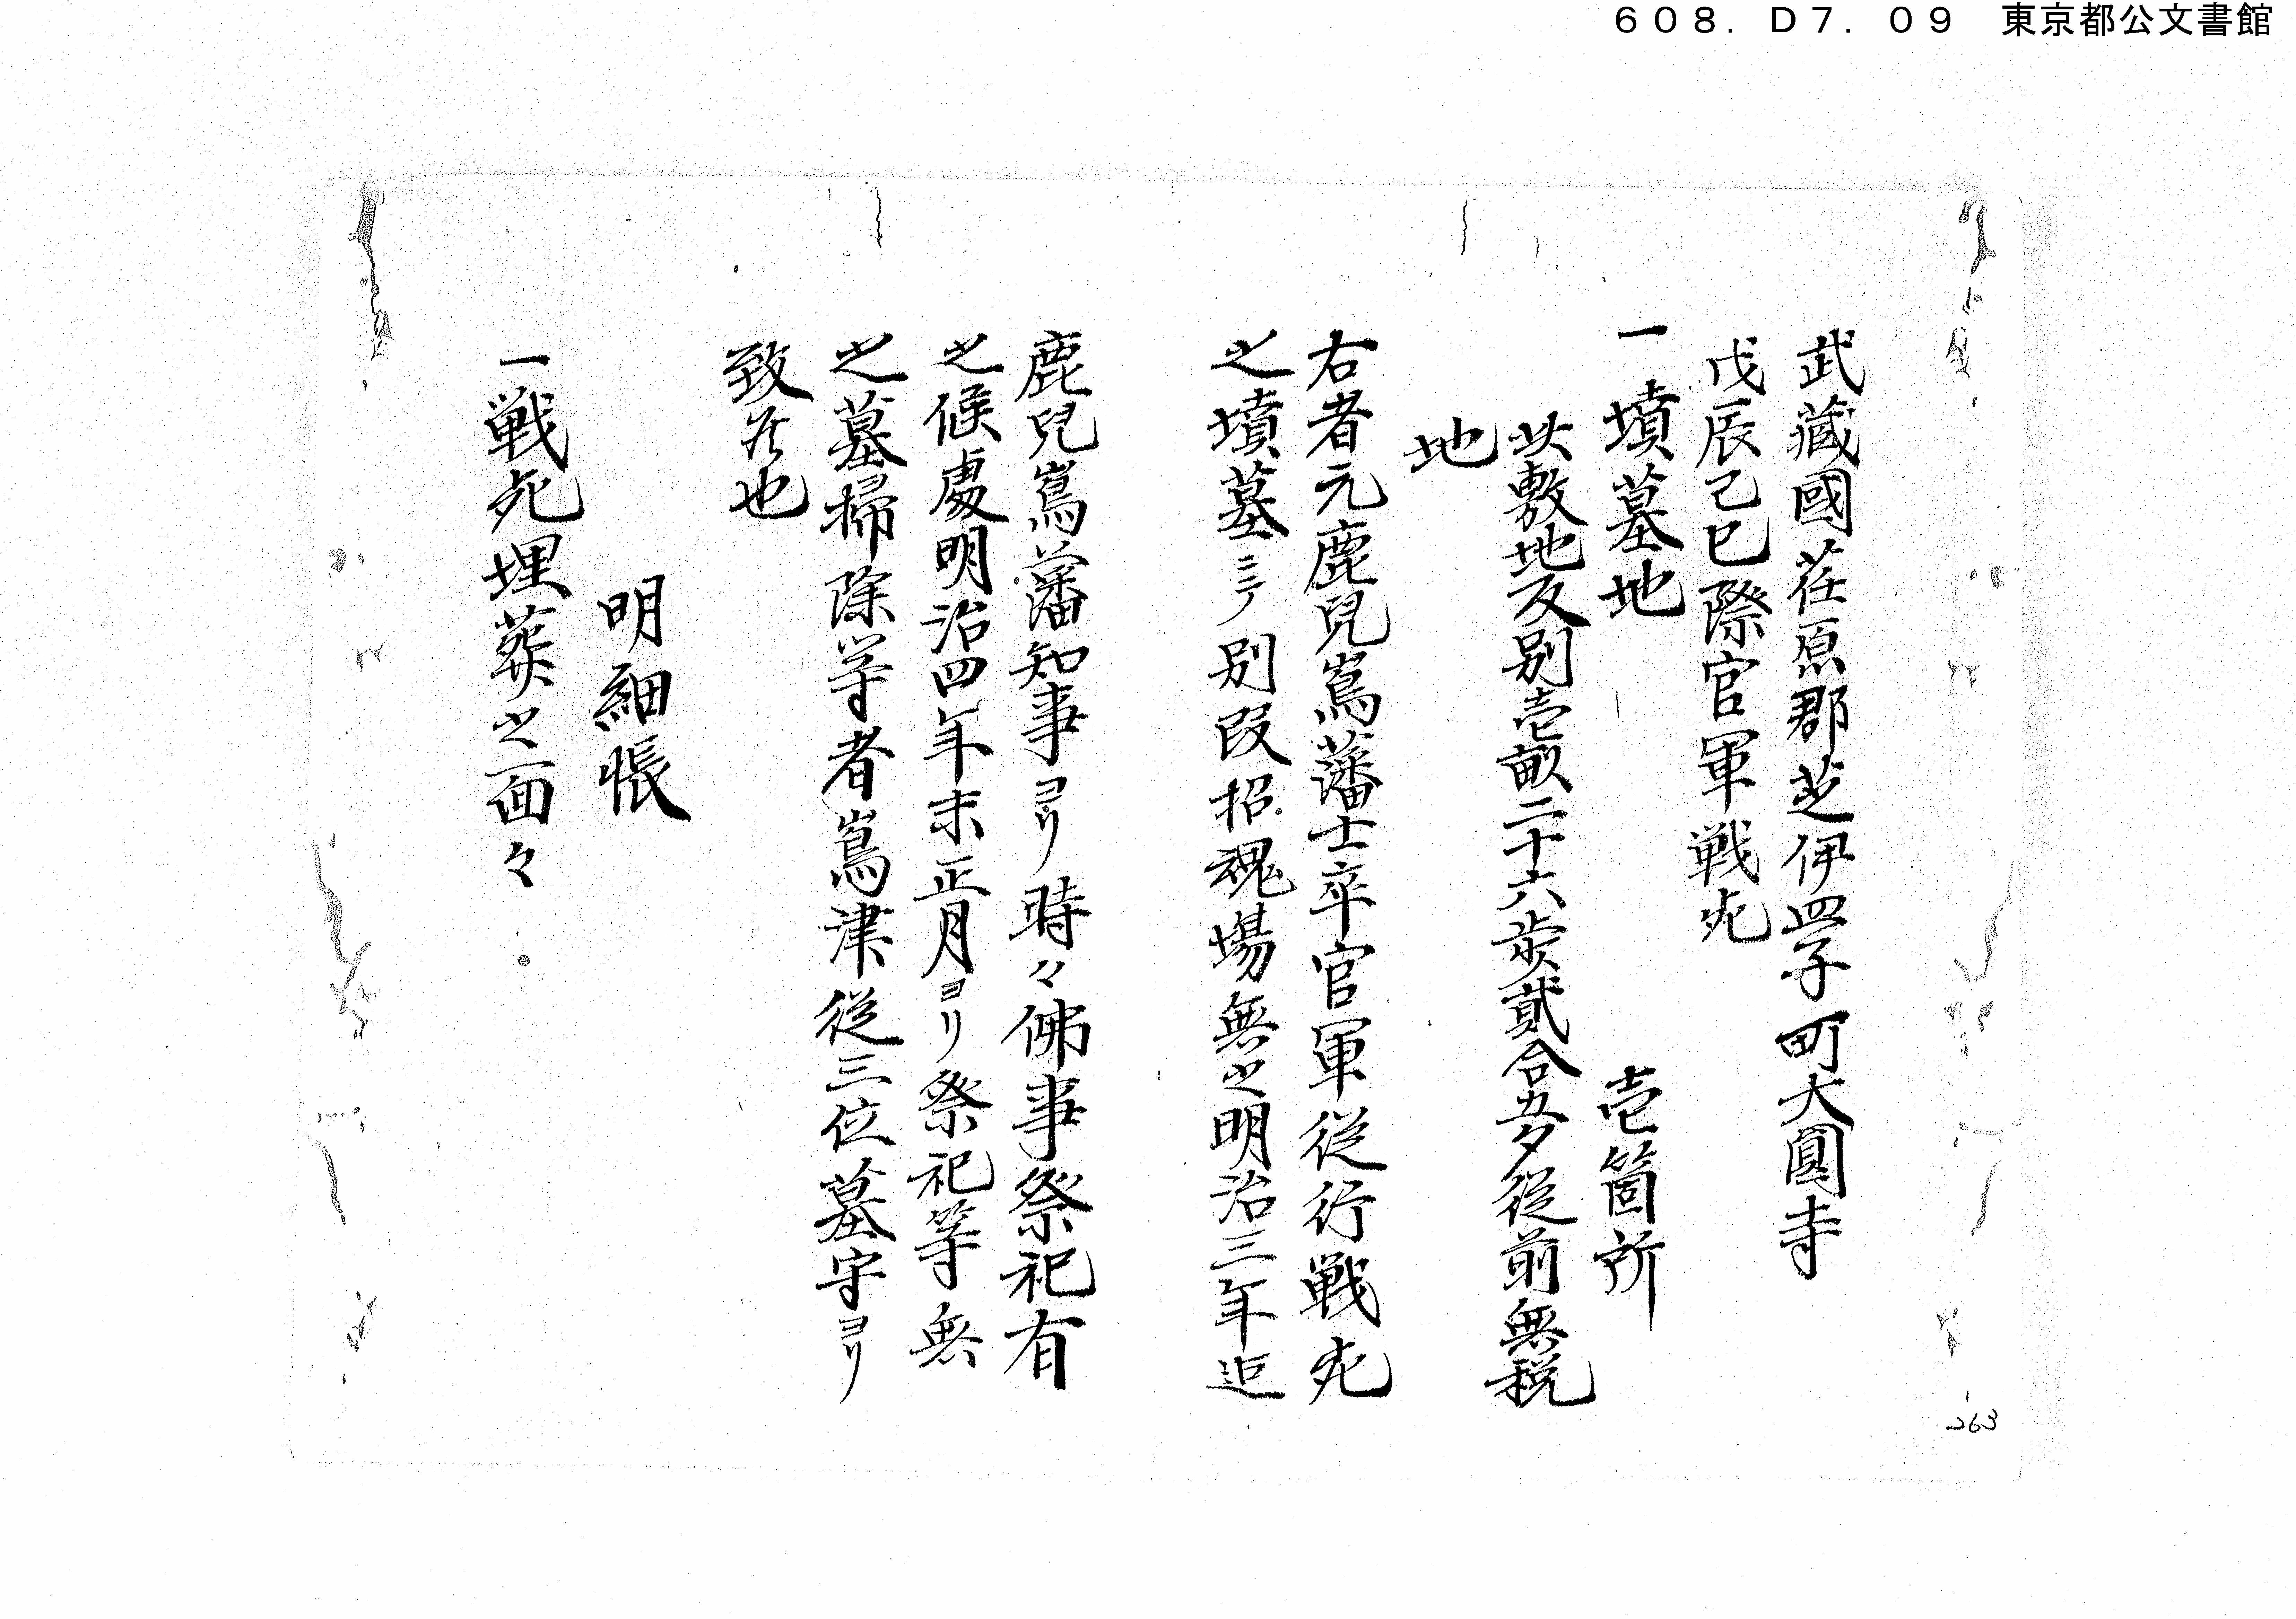 608. D7. 09 東京都公文書館
武藏國荏原郡芝伊皿子町大圓寺
戊辰己巳際官軍戦死
一墳墓地 壱箇所
此敷地反別壱畝二十六歩貳合五夕従前無税
地
右者元鹿兒嶌藩士卒官軍従行戦死
之墳墓ニテ別段招魂場無之明治三年迄
鹿兒嶌藩知事ヨリ時々佛事祭祀有
之候處明治四年未正月ヨリ祭祀等無
之墓掃除等者嶌津従三位墓守ヨリ
致候也
明細帳
一戦死埋葬之面々
263